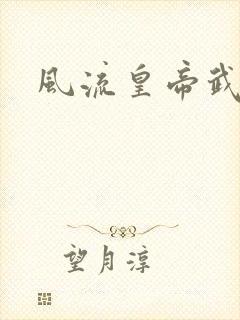 風流皇帝武
望月淳